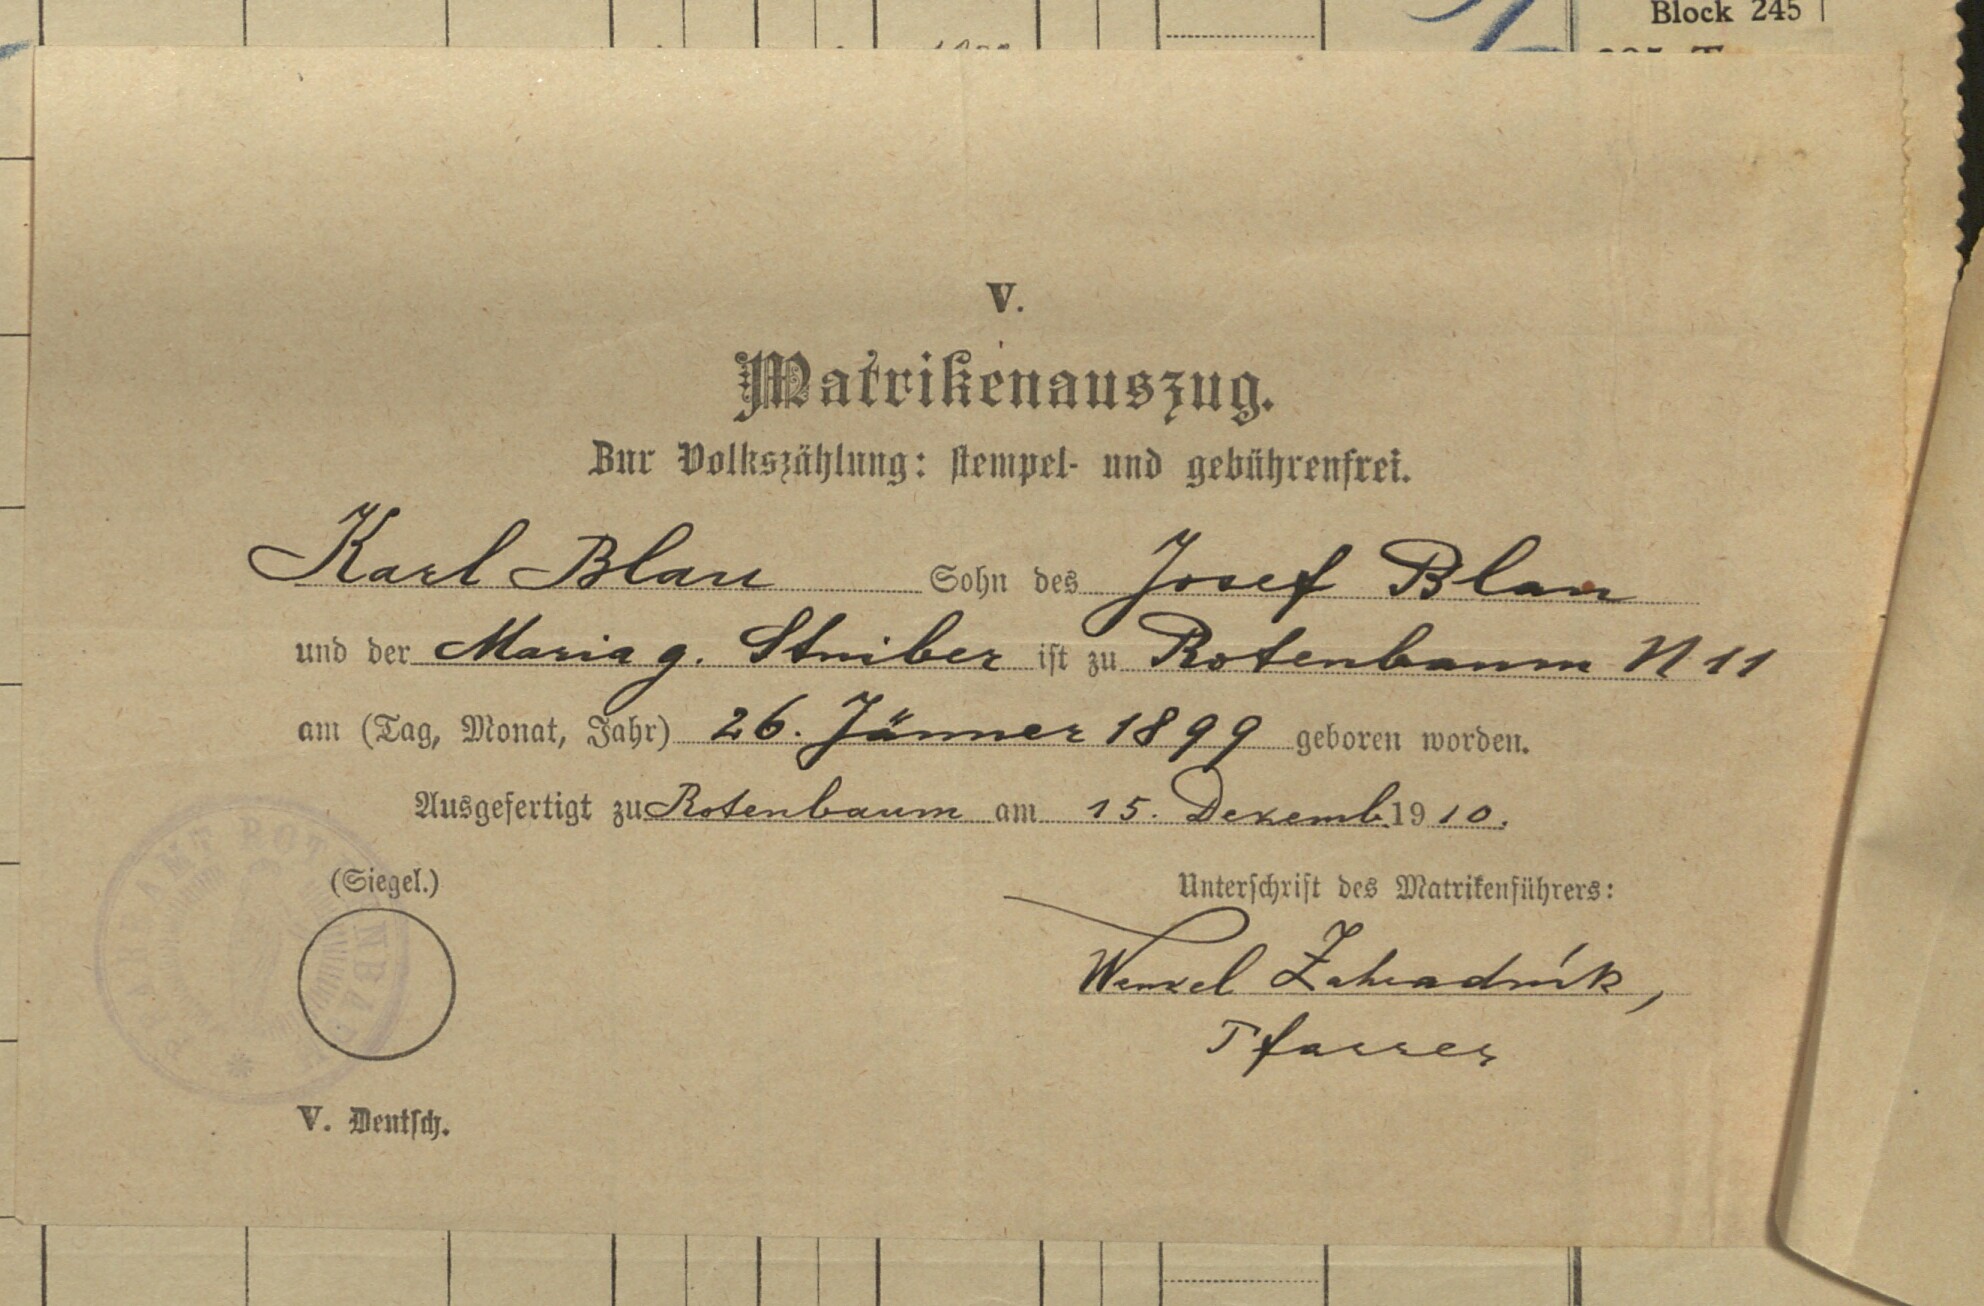 Block 245
V.
Matrikenauszug.
Zur Volkszählung: stempel- und gebührenfrei.
Karl Blau Sohn des Josef Blau
und der Maria g. Struiber ist zu Rotenbaum N 11
am (Tag, Monat, Jahr) 26. Jänner 1899 geboren worden.
Ausgefertigt zu Rotenbaum am 15. Dezemb. 1910.
(Siegel.)
Unterschrift des Matrikenführers:
PFARRAMT ROTHENBAUM
Wenzel Zahradník,
Pfarrer
V. Deutsch.